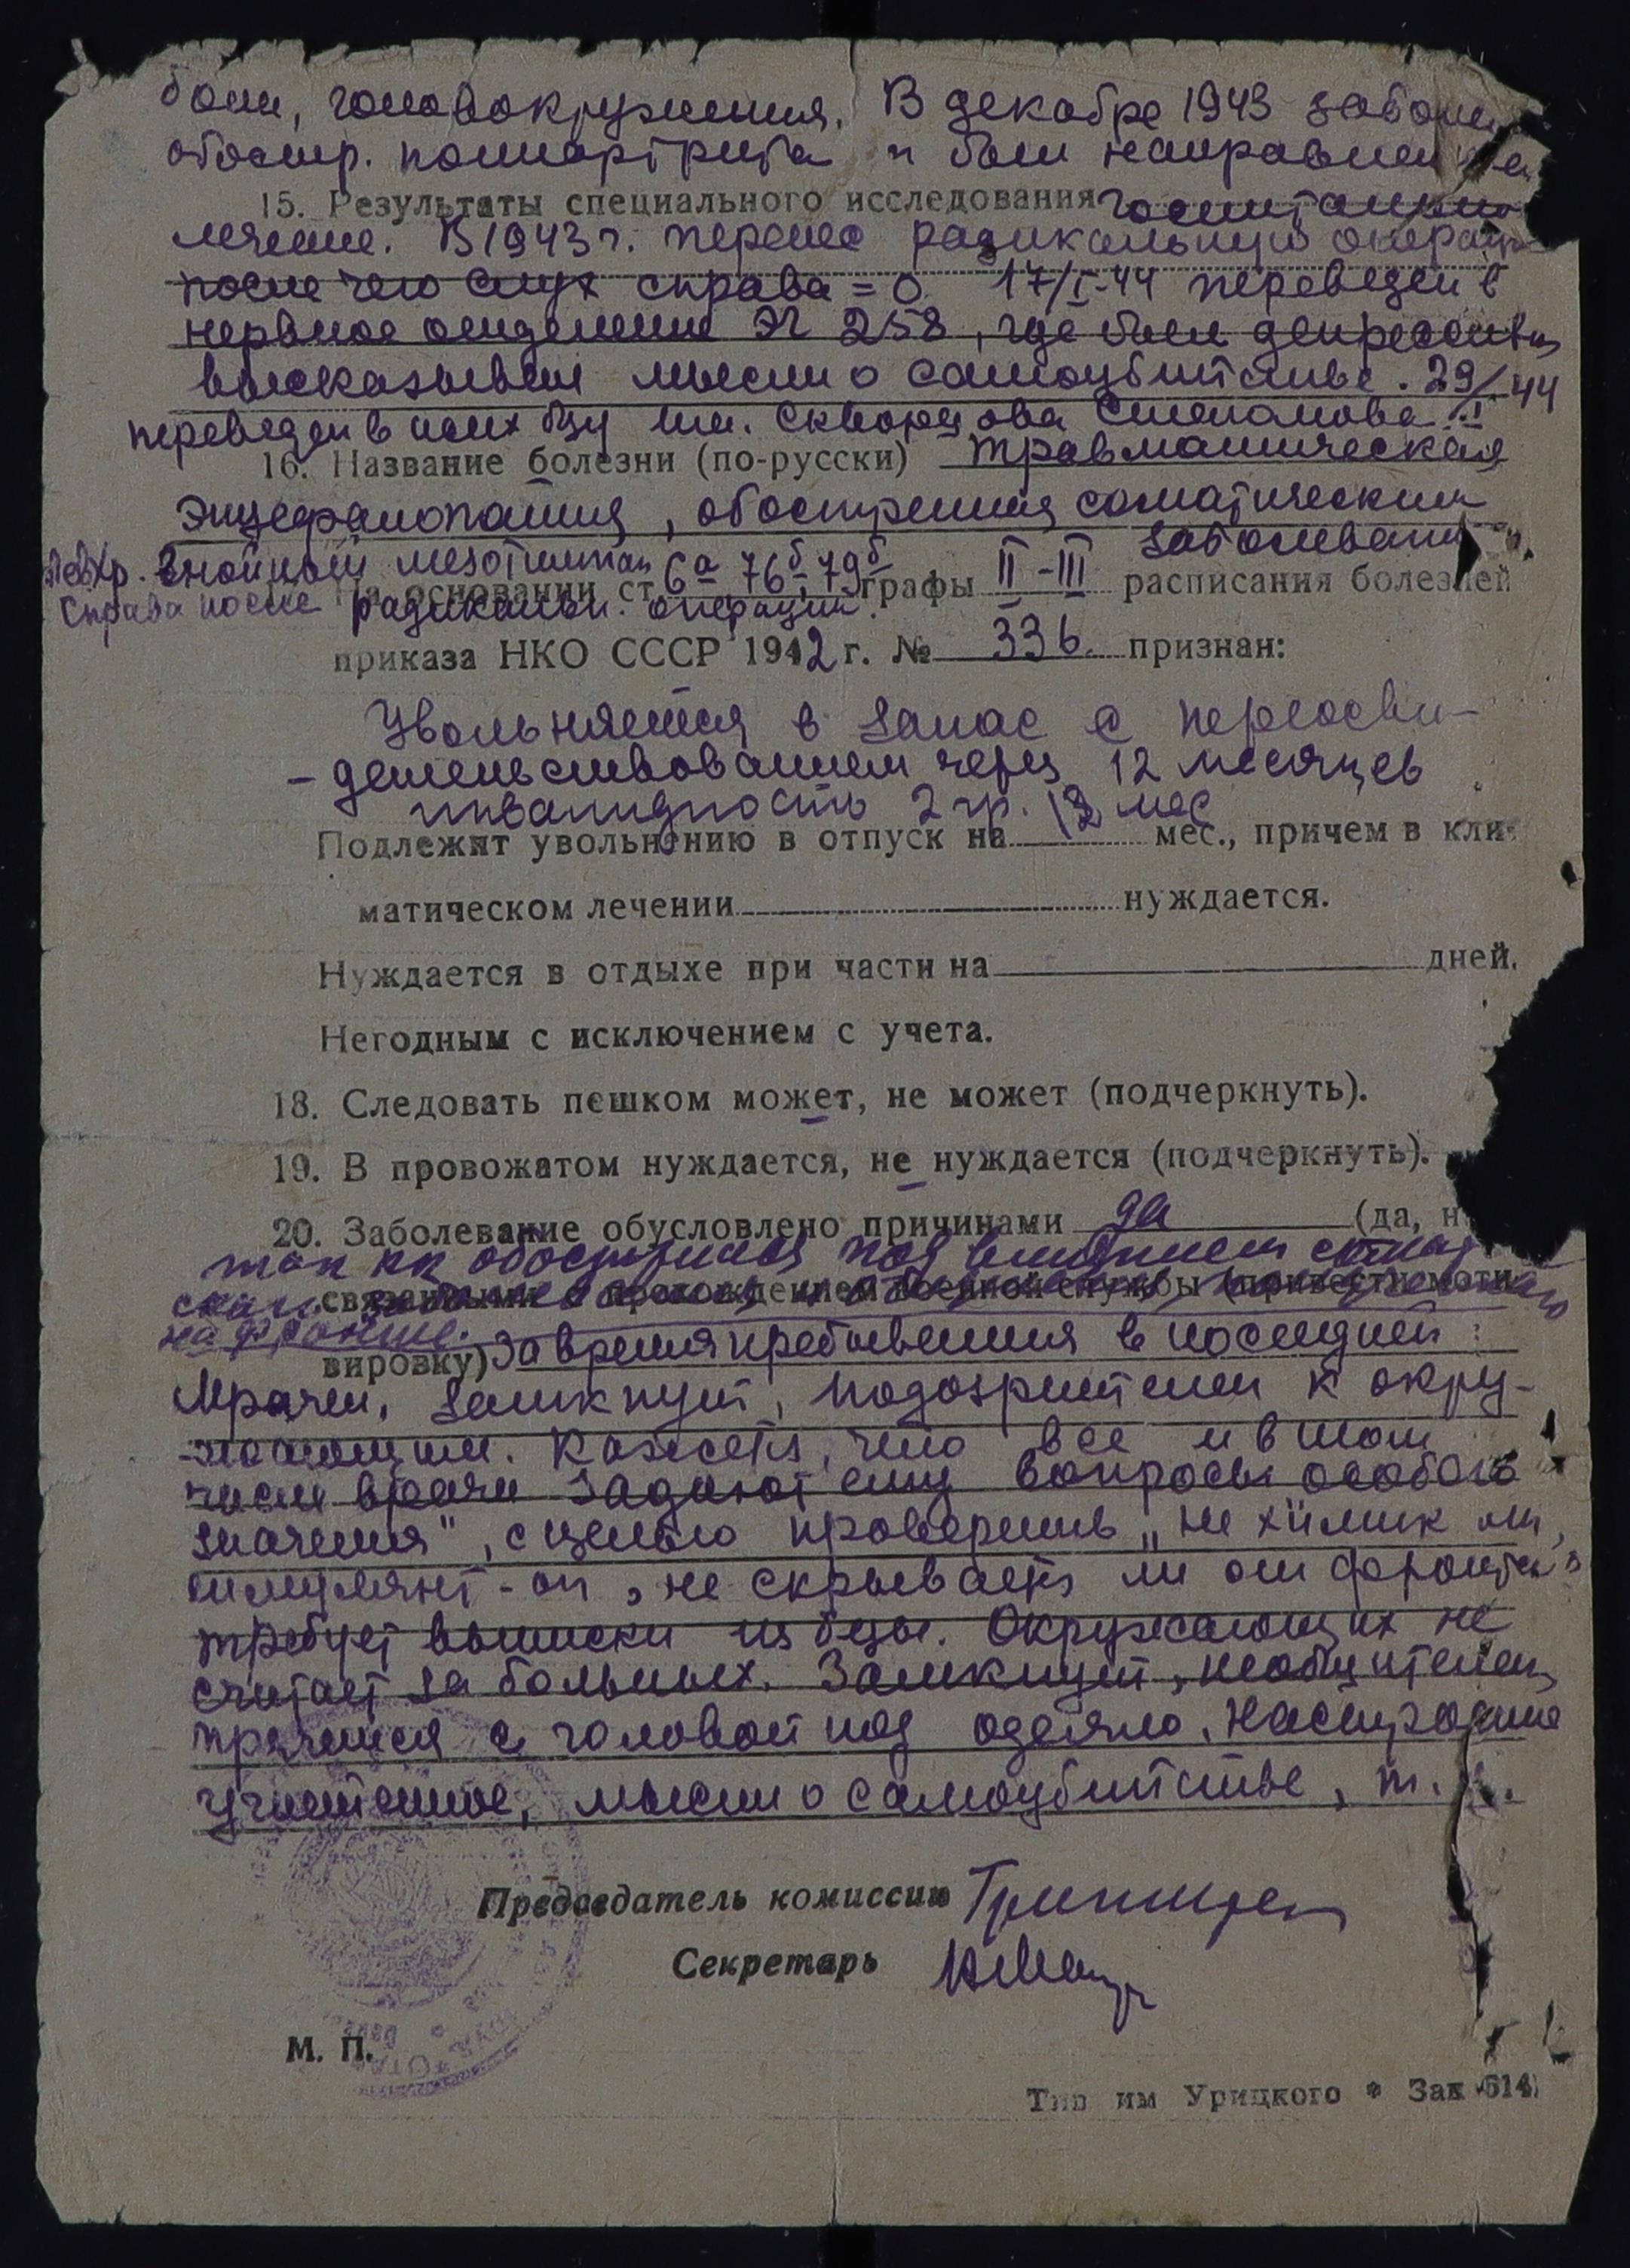 боли, головокружения. В декабре 1943 заболел
обостр. полиартрита и был направлен на
15. Результаты специального исследования госпитальное
лечение. В 1943 г. перенес радикальную операцию
после чего слух справа = 0. 17/I-44 переведен в
нервное отделение ЭГ 258, где был депрессивен
высказывал мысли о самоубийстве. 29/I 44
переведен в псих бцу им. Скворцова Степанова.
16. Название болезни (по-русски) травматическая
энцефалопатия, обостренная соматическим
заболеванием
хр. гнойный мезотимпан
На основании ст 6а 76б, 79б графы II-III расписания болезней
Справа после радикальн. операции.
приказа НКО СССР 1942 г. № 336. признан:
Увольняется в запас с переосви-
-детельствованием через 12 месяцев
инвалидность 2 гр. 12 мес
Подлежит увольнению в отпуск на мес., причем в кли-
матическом лечении нуждается.
Нуждается в отдыхе при части на дней.
Негодным с исключением с учета.
18. Следовать пешком может, не может (подчеркнуть).
19. В провожатом нуждается, не нуждается (подчеркнуть).
20. Заболевание обусловлено причинами да (да, н
так как обострилась под влиянием
связанными с прохождением военной службы (привести моти-
на фронте.
вировку) За время пребывения в последней:
Мрачен, замкнут, подозрителен к окру-
-жающим. Кажется, что все и в том
числе врачи задают ему вопросы особого
значения", с целью проверить „не химик ли,
симулянт-он, не скрывается ли от фронта"
требует выписки из бцы. Окружающих не
считает за больных. Замкнут, необщителен,
прячется с головой под одеяло. Настроение
угнетенное, мысли о самоубийстве, т.
Председатель комиссии
Секретарь
М. П.
Тип им Урицкого * Зак 614